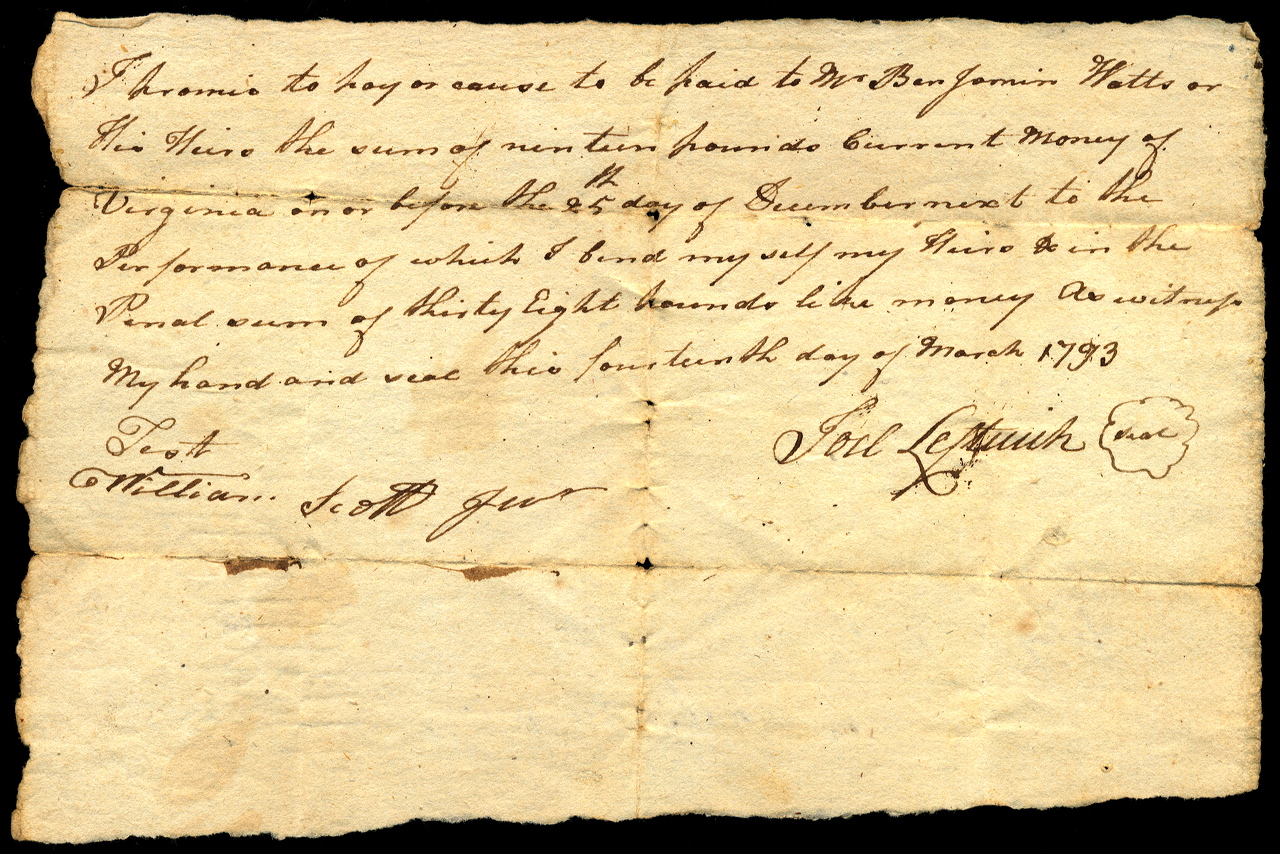 I promis to pay or cause to be paid to Mr Benjamin Watts or
His Heirs the sum of ninteen pounds Current Money of
Virginia on or before the 25th day of December next to the
Performance of which I bind my self my Heirs & in the
Penal sum of thirty Eight pounds like money As witness
My hand and seal this fourteenth day of March 1793
Joel Leftwich seal
Test
William Scott Junr